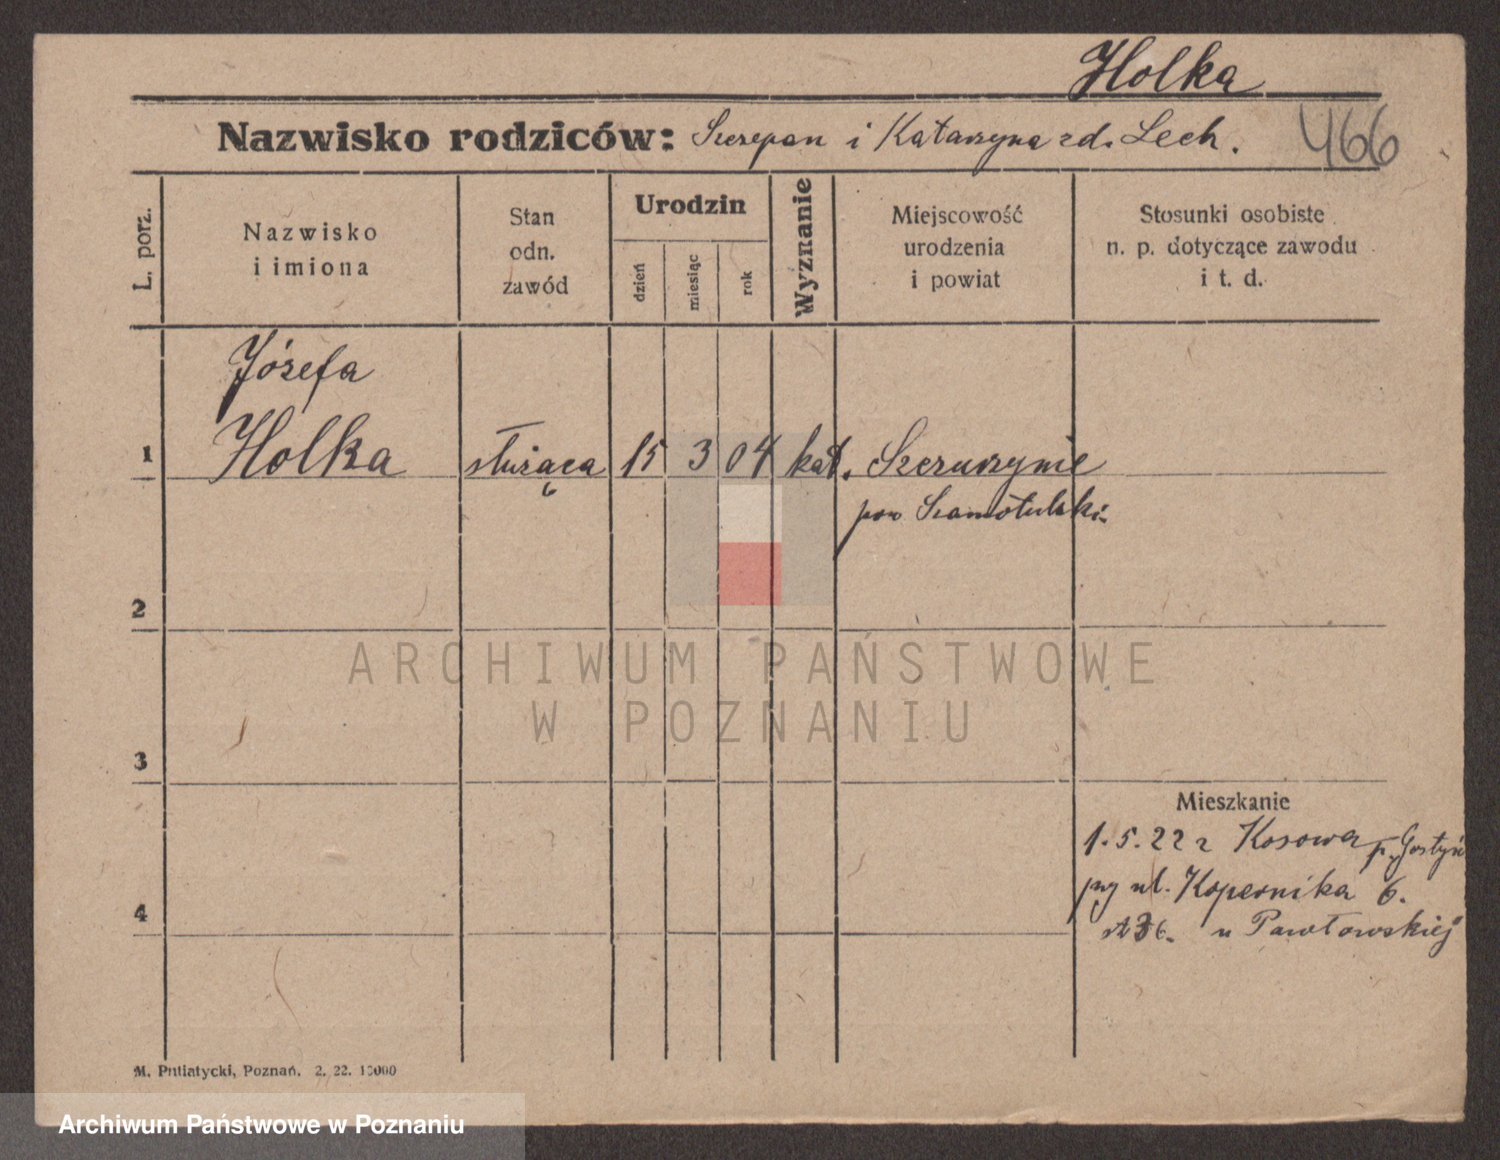 Holka
Nazwisko rodziców: Szczepan i Katarzyna zd. Lech.
466
L. porz.
Nazwisko
i imiona
Stan
odn.
zawód
Urodzin
dzień
miesiąc
rok
Wyznanie
Miejscowość
urodzenia
i powiat
Stosunki osobiste
n. p. dotyczące zawodu
i t. d.
Józefa
1 Holka służąca 15 3 04 kat.
pow Szamotulski
2
ARCHIWUM PAŃSTWOWE
W POZNANIU
3
Mieszkanie
1.5.22 z Kosowa p. Gostyń
przy ul. Kopernika 6.
4
u Pawłowskiej
M. Putiatycki, Poznań. 2. 22. 10000
Archiwum Państwowe w Poznaniu